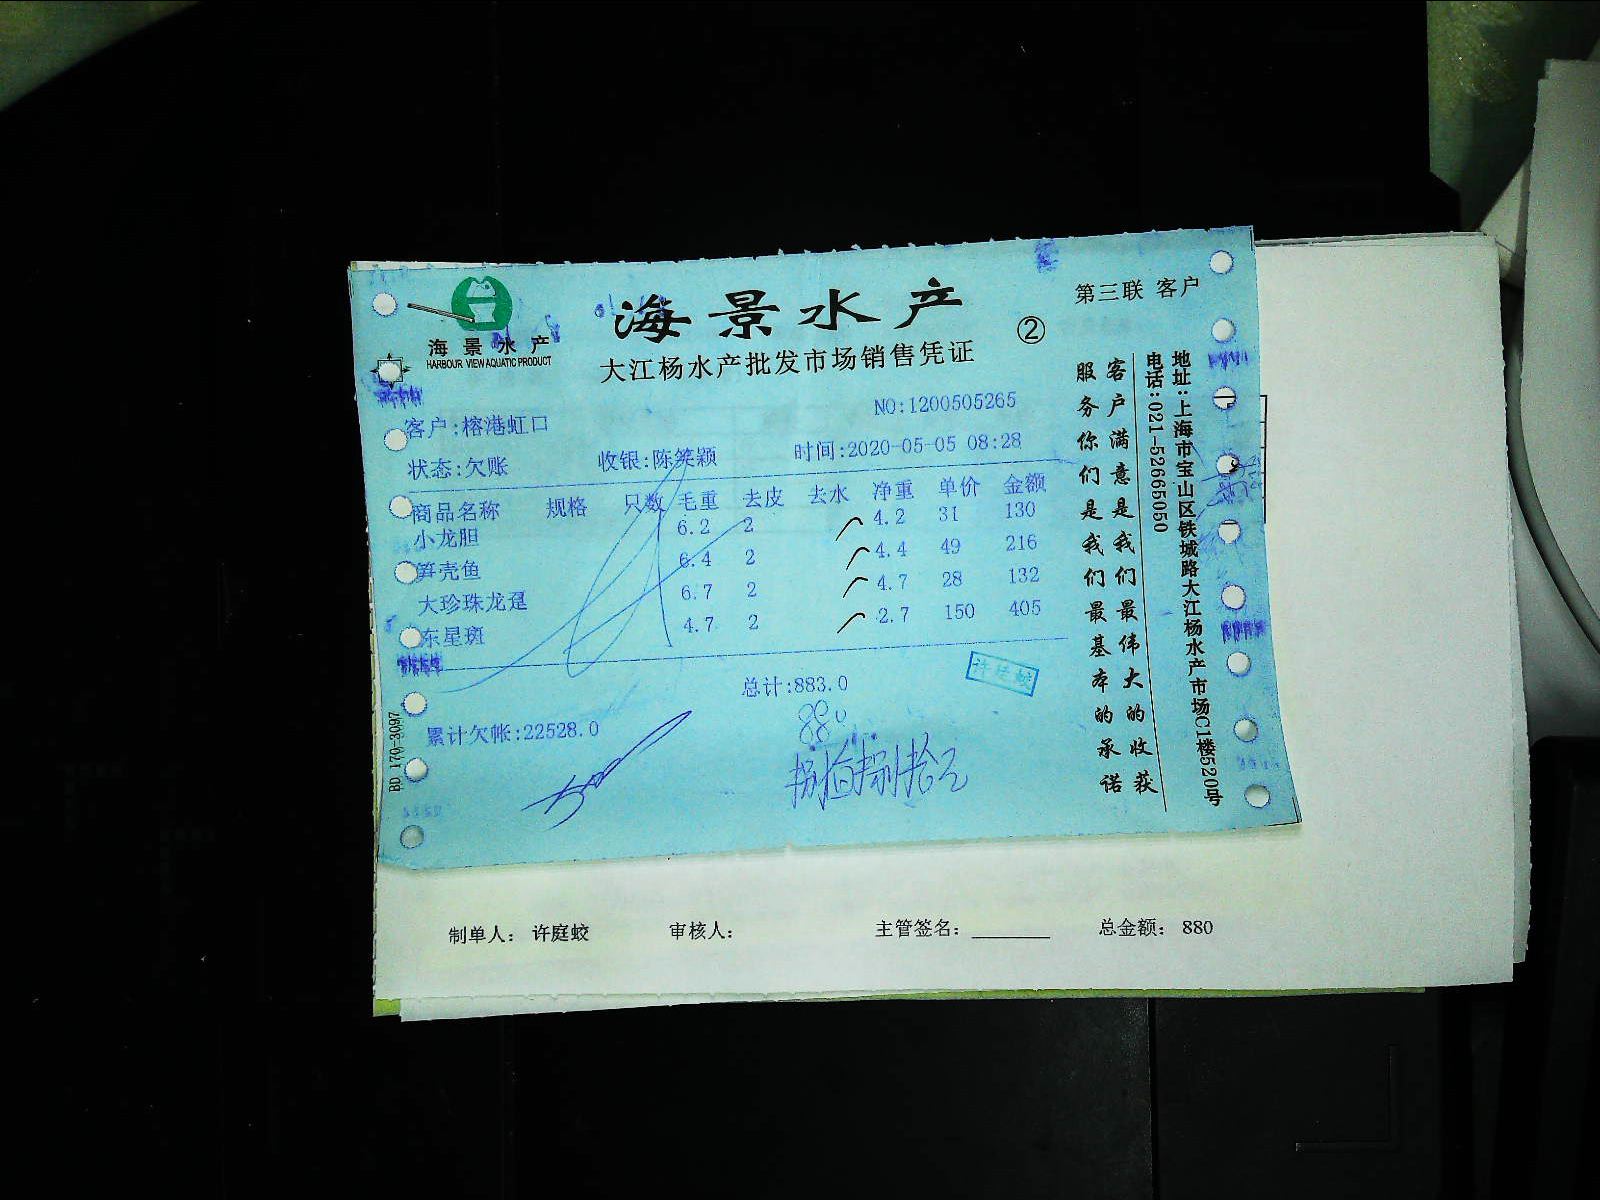 海景水产
第三联 客户
海景水产
HARBOUR VIEW AQUATIC PRODUCT
大江杨水产批发市场销售凭证
②
NO:1200505265
客户:榕港虹口
状态:欠账 收银:陈笑颖 时间:2020-05-05 08:28
商品名称 规格 只数 毛重 去皮 去水 净重 单价 金额
小龙胆 6.2 2 4.2 31 130
笋壳鱼 6.4 2 4.4 49 216
大珍珠龙趸 6.7 2 4.7 28 132
东星斑 4.7 2 2.7 150 405
总计:883.0
许庭蛟
累计欠帐:22528.0
880
捌佰捌拾元
BD 170-3097
客户满意是我们最伟大的收获
服务你们是我们最基本的承诺
地址:上海市宝山区铁城路大江杨水产市场C1楼520号
电话:021-52665050
制单人: 许庭蛟 审核人: 主管签名: 总金额: 880